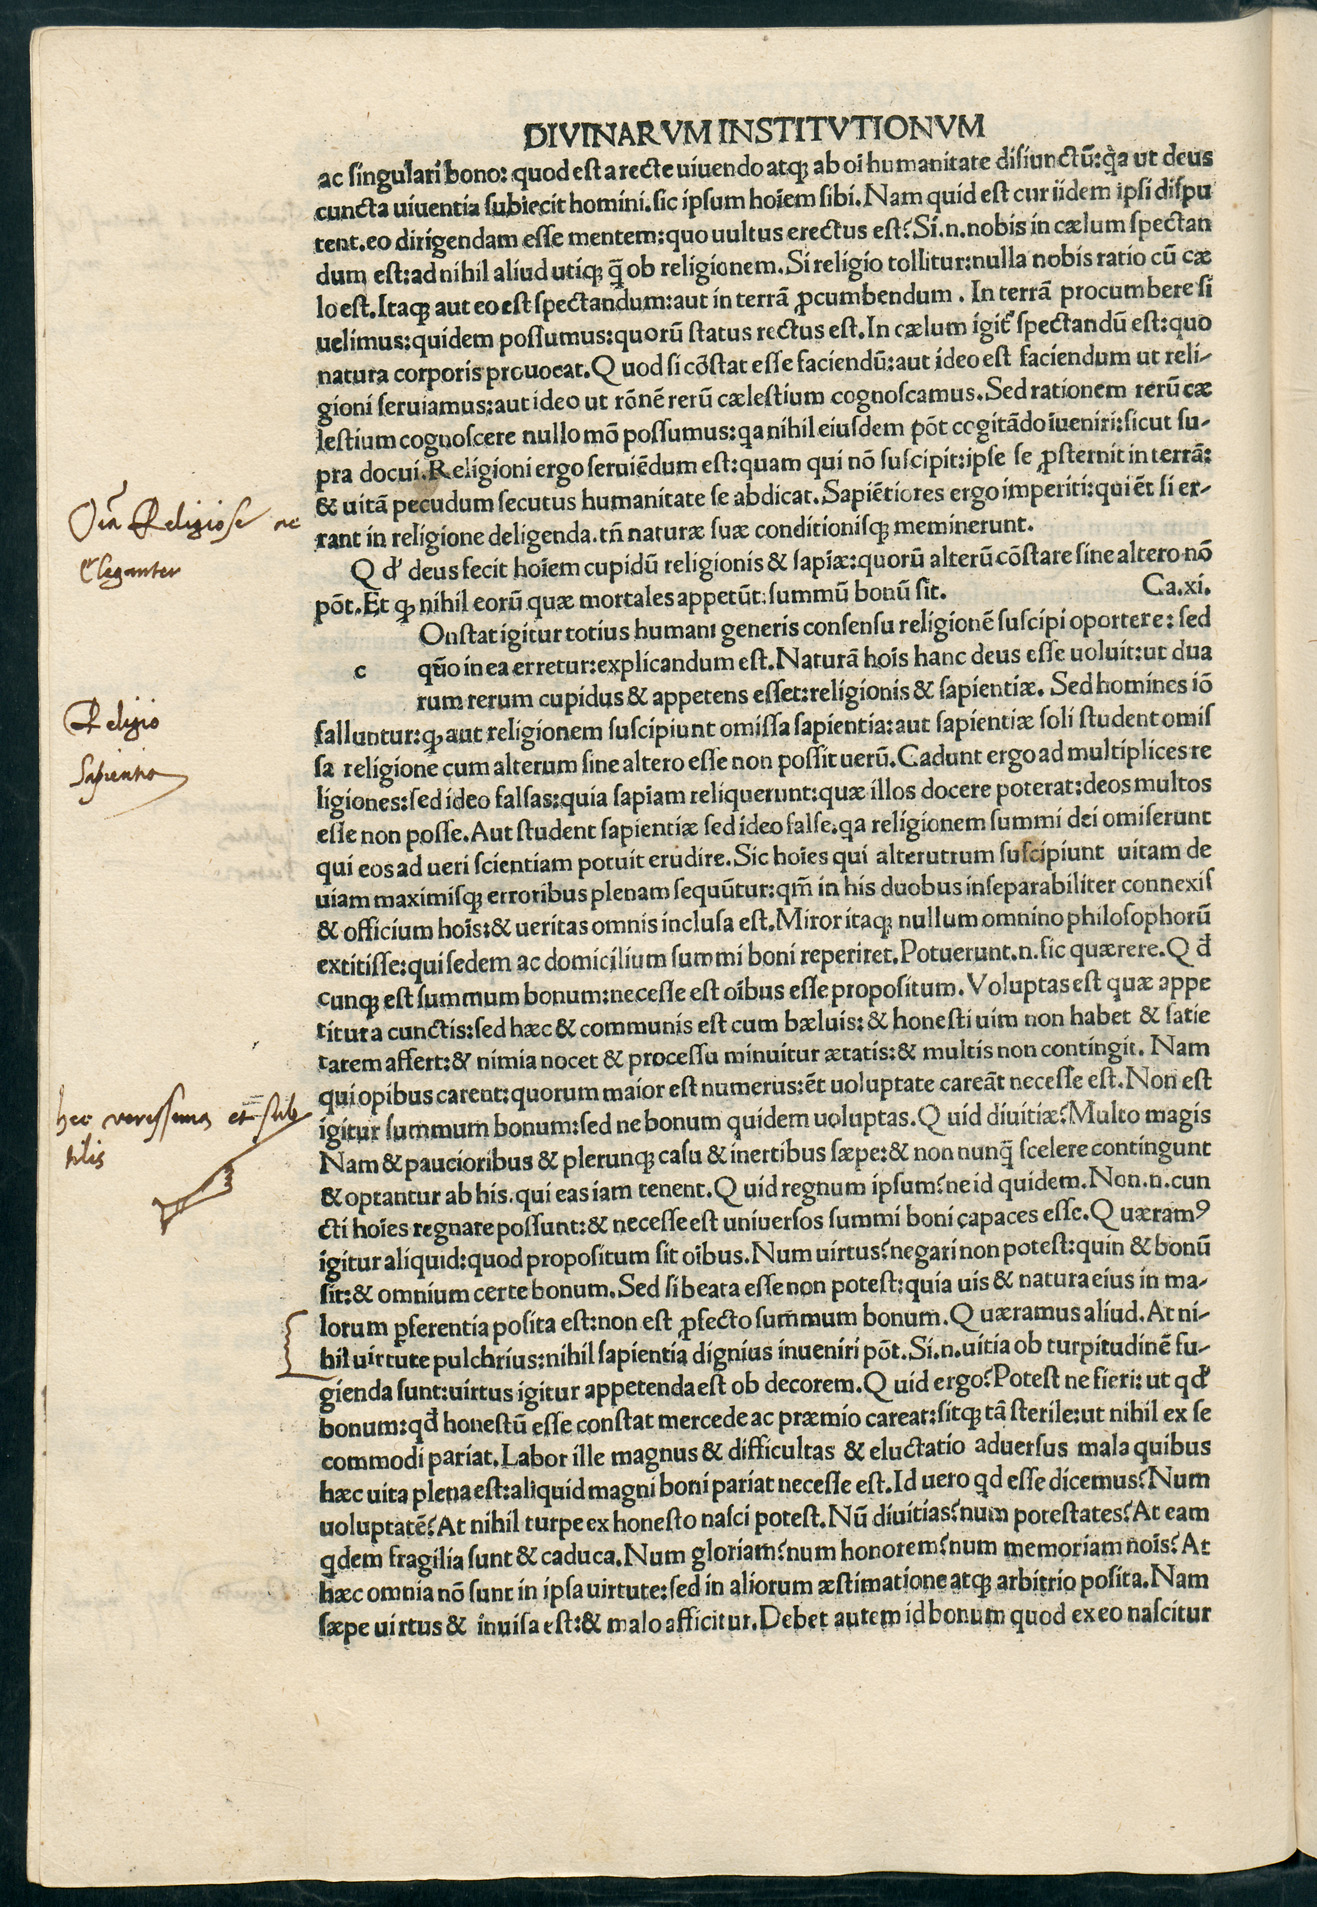 DIVINARVM INSTITVTIONVM
ac singulari bono: quod est a recte uiuendo atq; ab oī humanitate disiunctū: q̈a ut deus
cuncta uiuentia subiecit homini. sic ipsum hoīem sibi. Nam quid est cur iidem ipsi dispu
tent. eo dirigendam esse mentem: quo uultus erectus est? Si .n. nobis in cælum spectan
dum est: ad nihil aliud utiq; q̄ ob religionem. Si religio tollitur: nulla nobis ratio cū cæ
lo est. Itaq; aut eo est spectandum: aut in terrā ꝓcumbendum. In terrā procumbere si
uelimus: quidem possumus: quorū status rectus est. In cælum igit᷑ spectandū est: quo
natura corporis prouocat. Quod si cōstat esse faciendū: aut ideo est faciendum ut reli-
gioni seruiamus: aut ideo ut rōnē rerū cælestium cognoscamus. Sed rationem rerū cæ
lestium cognoscere nullo mō possumus: qa nihil eiusdem pōt cogitādo iueniri: sicut su-
pra docui. Religioni ergo seruiēdum est: quam qui nō suscipit: ipse se ꝓsternit in terrā:
& uitā pecudum secutus humanitate se abdicat. Sapiētiores ergo imperiti: qui ēt si er-
rant in religione deligenda. tñ naturæ suæ conditionisq; meminerunt.
Oīa Religiose ac
Eleganter
Q d' deus fecit hoīem cupidū religionis & sapiæ: quorū alterū cōstare sine altero nō
pōt. Et ꝙ nihil eorū quæ mortales appetūt: summū bonū sit. Ca. xi.
Onstat igitur totius humani generis consensu religionē suscipi oportere: sed
c qūo in ea erretur: explicandum est. Naturā hoīs hanc deus esse uoluit: ut dua
rum rerum cupidus & appetens esset: religionis & sapientiæ. Sed homines iō
Religio
Sapientia
falluntur: ꝙ aut religionem suscipiunt omissa sapientia: aut sapientiæ soli student omis
sa religione cum alterum sine altero esse non possit uerū. Cadunt ergo ad multiplices re
ligiones: sed ideo falsas: quia sapiam reliquerunt: quæ illos docere poterat: deos multos
esse non posse. Aut student sapientiæ sed ideo false. qa religionem summi dei omiserunt
qui eos ad ueri scientiam potuit erudire. Sic hoīes qui alterutrum suscipiunt uitam de
uiam maximisq; erroribus plenam sequūtur: qm̄ in his duobus inseparabiliter connexis
& officium hoīs: & ueritas omnis inclusa est. Miror itaq; nullum omnino philosophorū
extitisse: qui sedem ac domicilium summi boni reperiret. Potuerunt .n. sic quærere. Q đ
cunq; est summum bonum: necesse est oībus esse propositum. Voluptas est quæ appe
titur a cunctis: sed hæc & communis est cum bæluis: & honesti uim non habet & satie
tatem affert: & nimia nocet & processu minuitur ætatis: & multis non contingit. Nam
qui opibus carent: quorum maior est numerus: ēt uoluptate careāt necesse est. Non est
hec verissima et
igitur summum bonum: sed ne bonum quidem uoluptas. Quid diuitiæ? Multo magis
Nam & paucioribus & plerunq; casu & inertibus sæpe: & non nunq̄ scelere contingunt
& optantur ab his. qui eas iam tenent. Quid regnum ipsum? ne id quidem. Non .n. cun
cti hoīes regnare possunt: & necesse est uniuersos summi boni capaces esse. Quæramꝰ
igitur aliquid: quod propositum sit oībus. Num uirtus? negari non potest: quin & bonū
sit: & omnium certe bonum. Sed si beata esse non potest: quia uis & natura eius in ma-
lorum ꝑferentia posita est: non est ꝓfecto summum bonum. Quæramus aliud. At ni-
hil uirtute pulchrius: nihil sapientia dignius inueniri pōt. Si .n. uitia ob turpitudinē fu-
gienda sunt: uirtus igitur appetenda est ob decorem. Quid ergo? Potest ne fieri: ut qđ
bonum: qđ honestū esse constat mercede ac præmio careat: sitq; tā sterile: ut nihil ex se
commodi pariat. Labor ille magnus & difficultas & eluctatio aduersus mala quibus
hæc uita plena est: aliquid magni boni pariat necesse est. Id uero qd esse dicemus? Num
uoluptatē? At nihil turpe ex honesto nasci potest. Nū diuitias? num potestates? At eam
qdem fragilia sunt & caduca. Num gloriam? num honorem? num memoriam noīs? At
hæc omnia nō sunt in ipsa uirtute: sed in aliorum æstimatione atq; arbitrio posita. Nam
sæpe uirtus & inuisa est: & malo afficitur. Debet autem id bonum quod ex eo nascitur